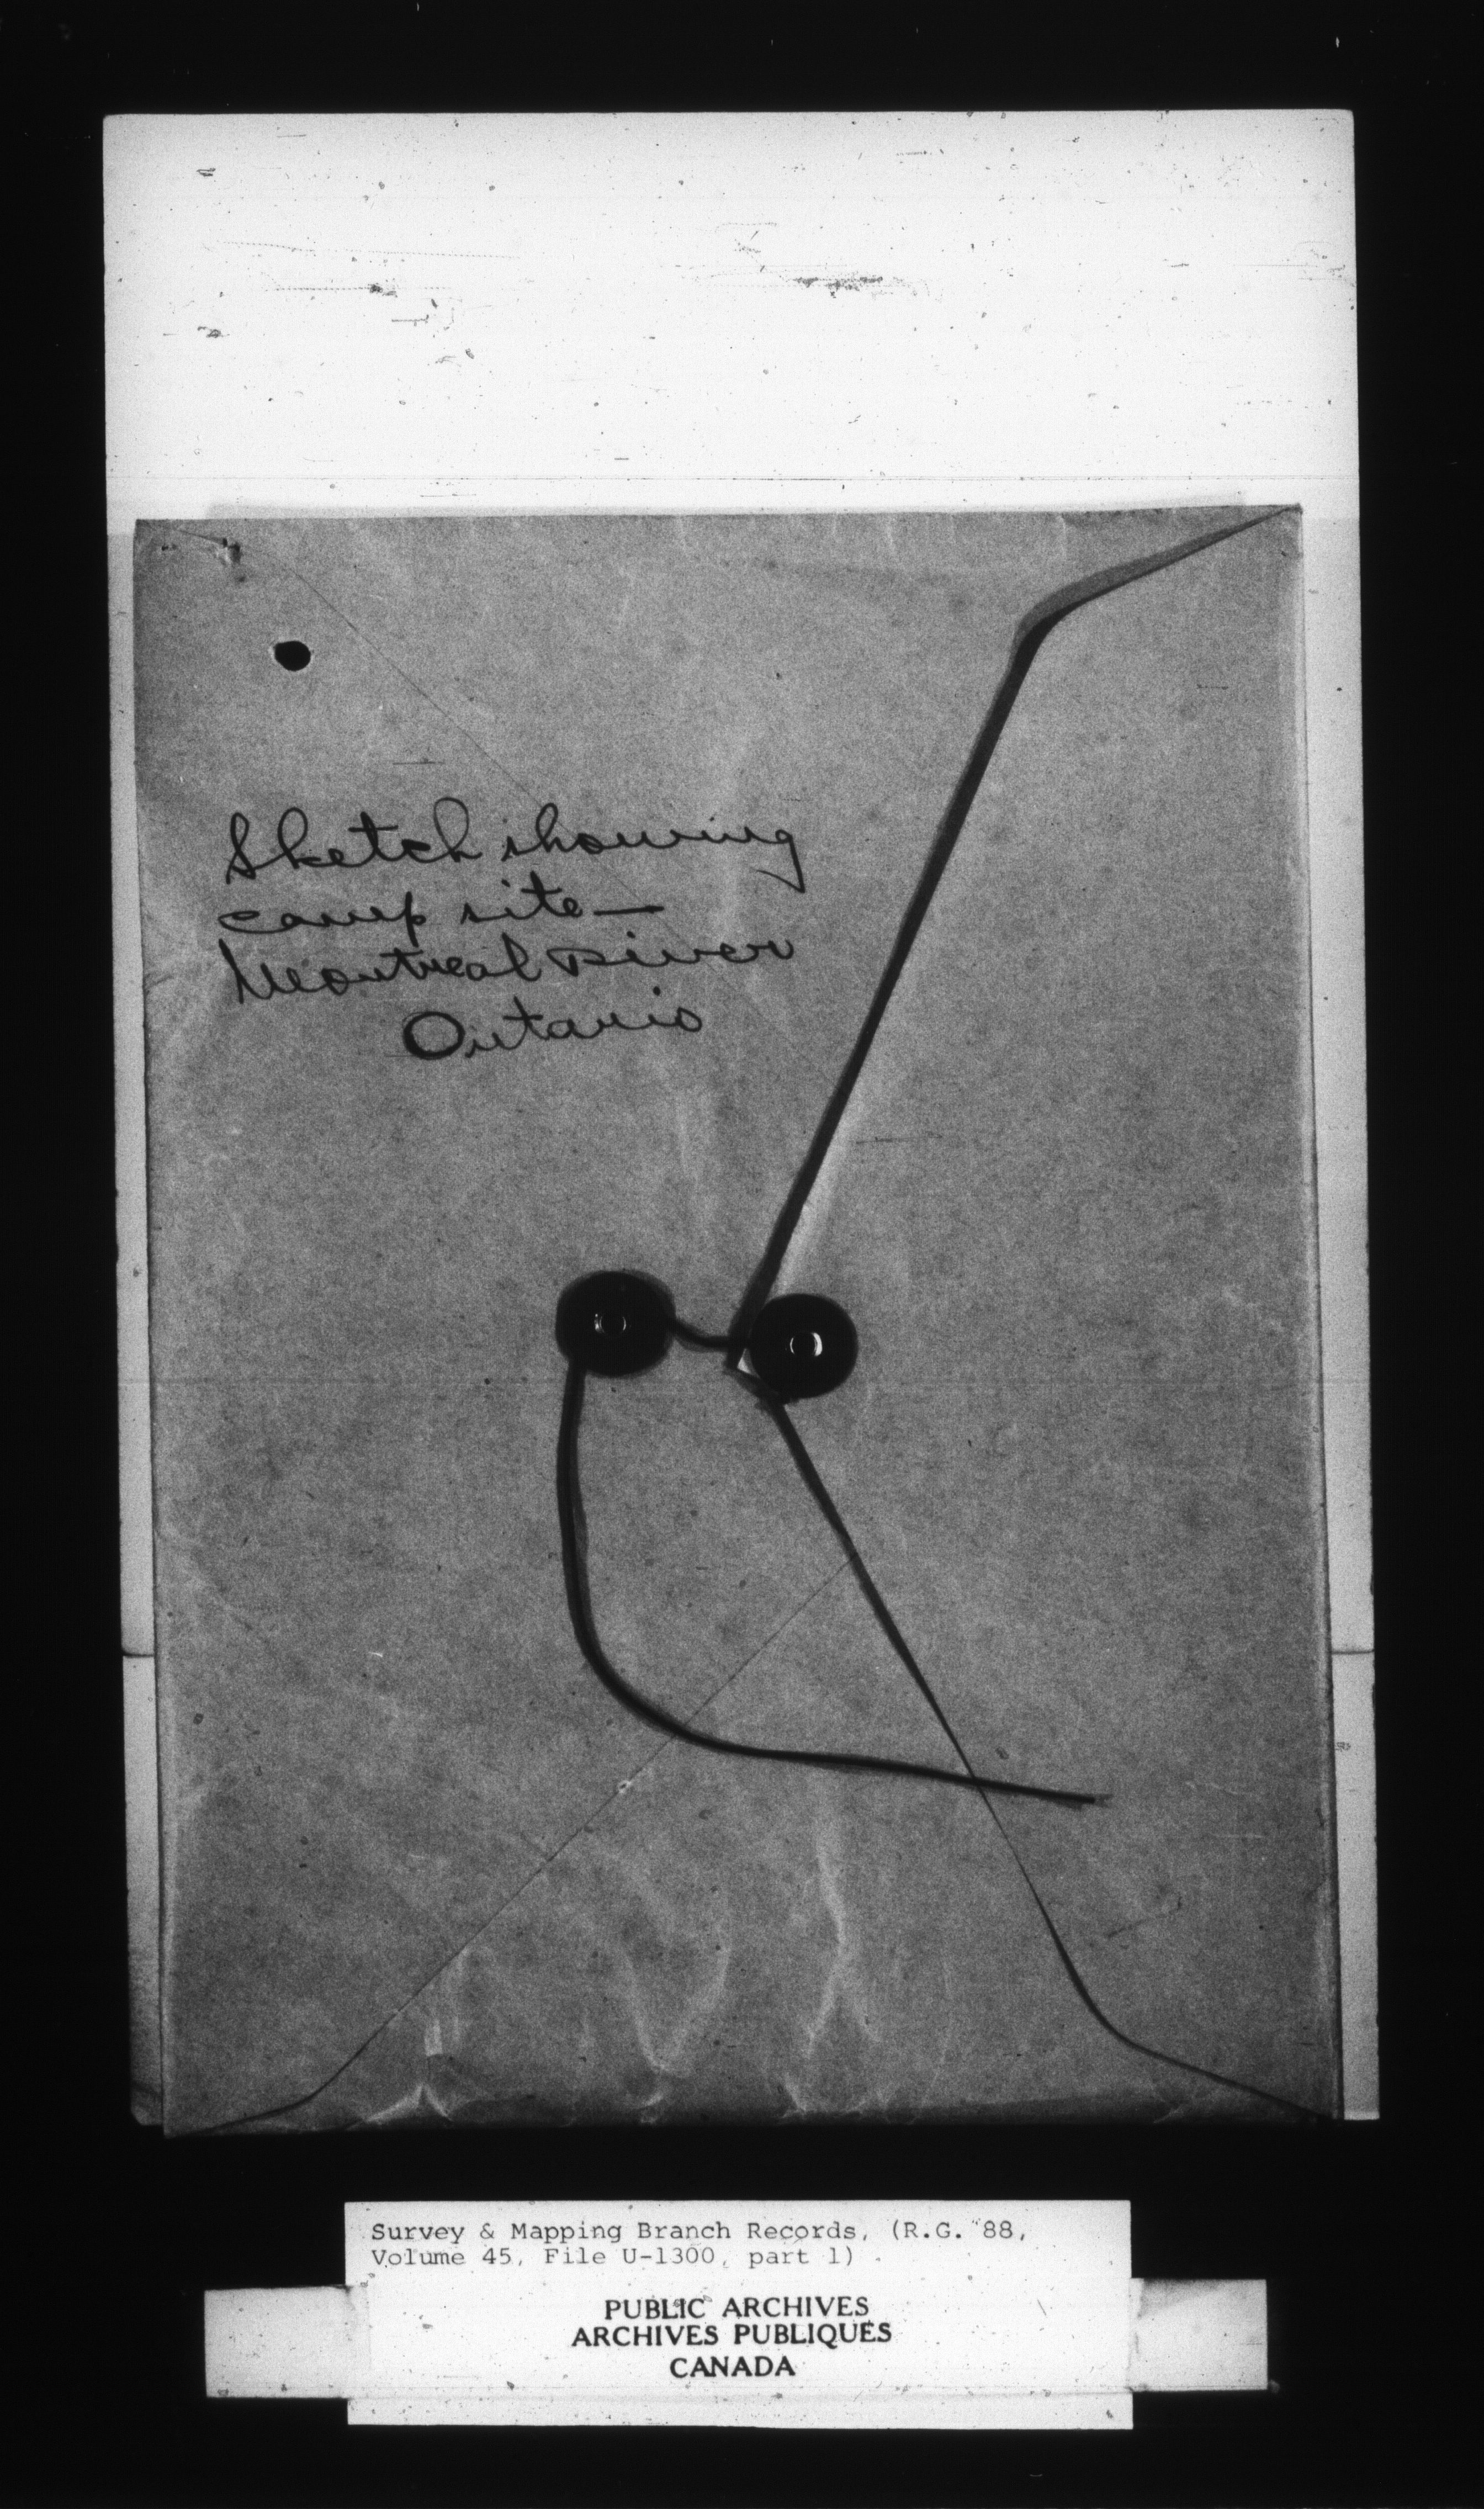 Sketch showing
camp site —
Montreal River
Ontario
Survey & Mapping Branch Records, (R.G. 88,
Volume 45, File U-1300, part 1)
PUBLIC ARCHIVES
ARCHIVES PUBLIQUES
CANADA